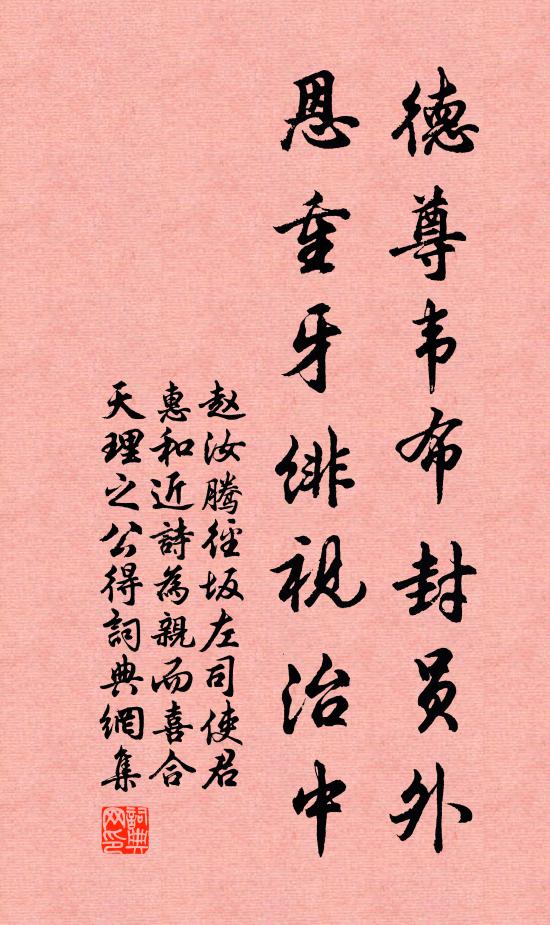 德尊韦布封员外
恩重牙绯视治中
赵汝腾径坂左司使君
惠和近詩為親而喜合
天理之公得詞典網集
詞典网印